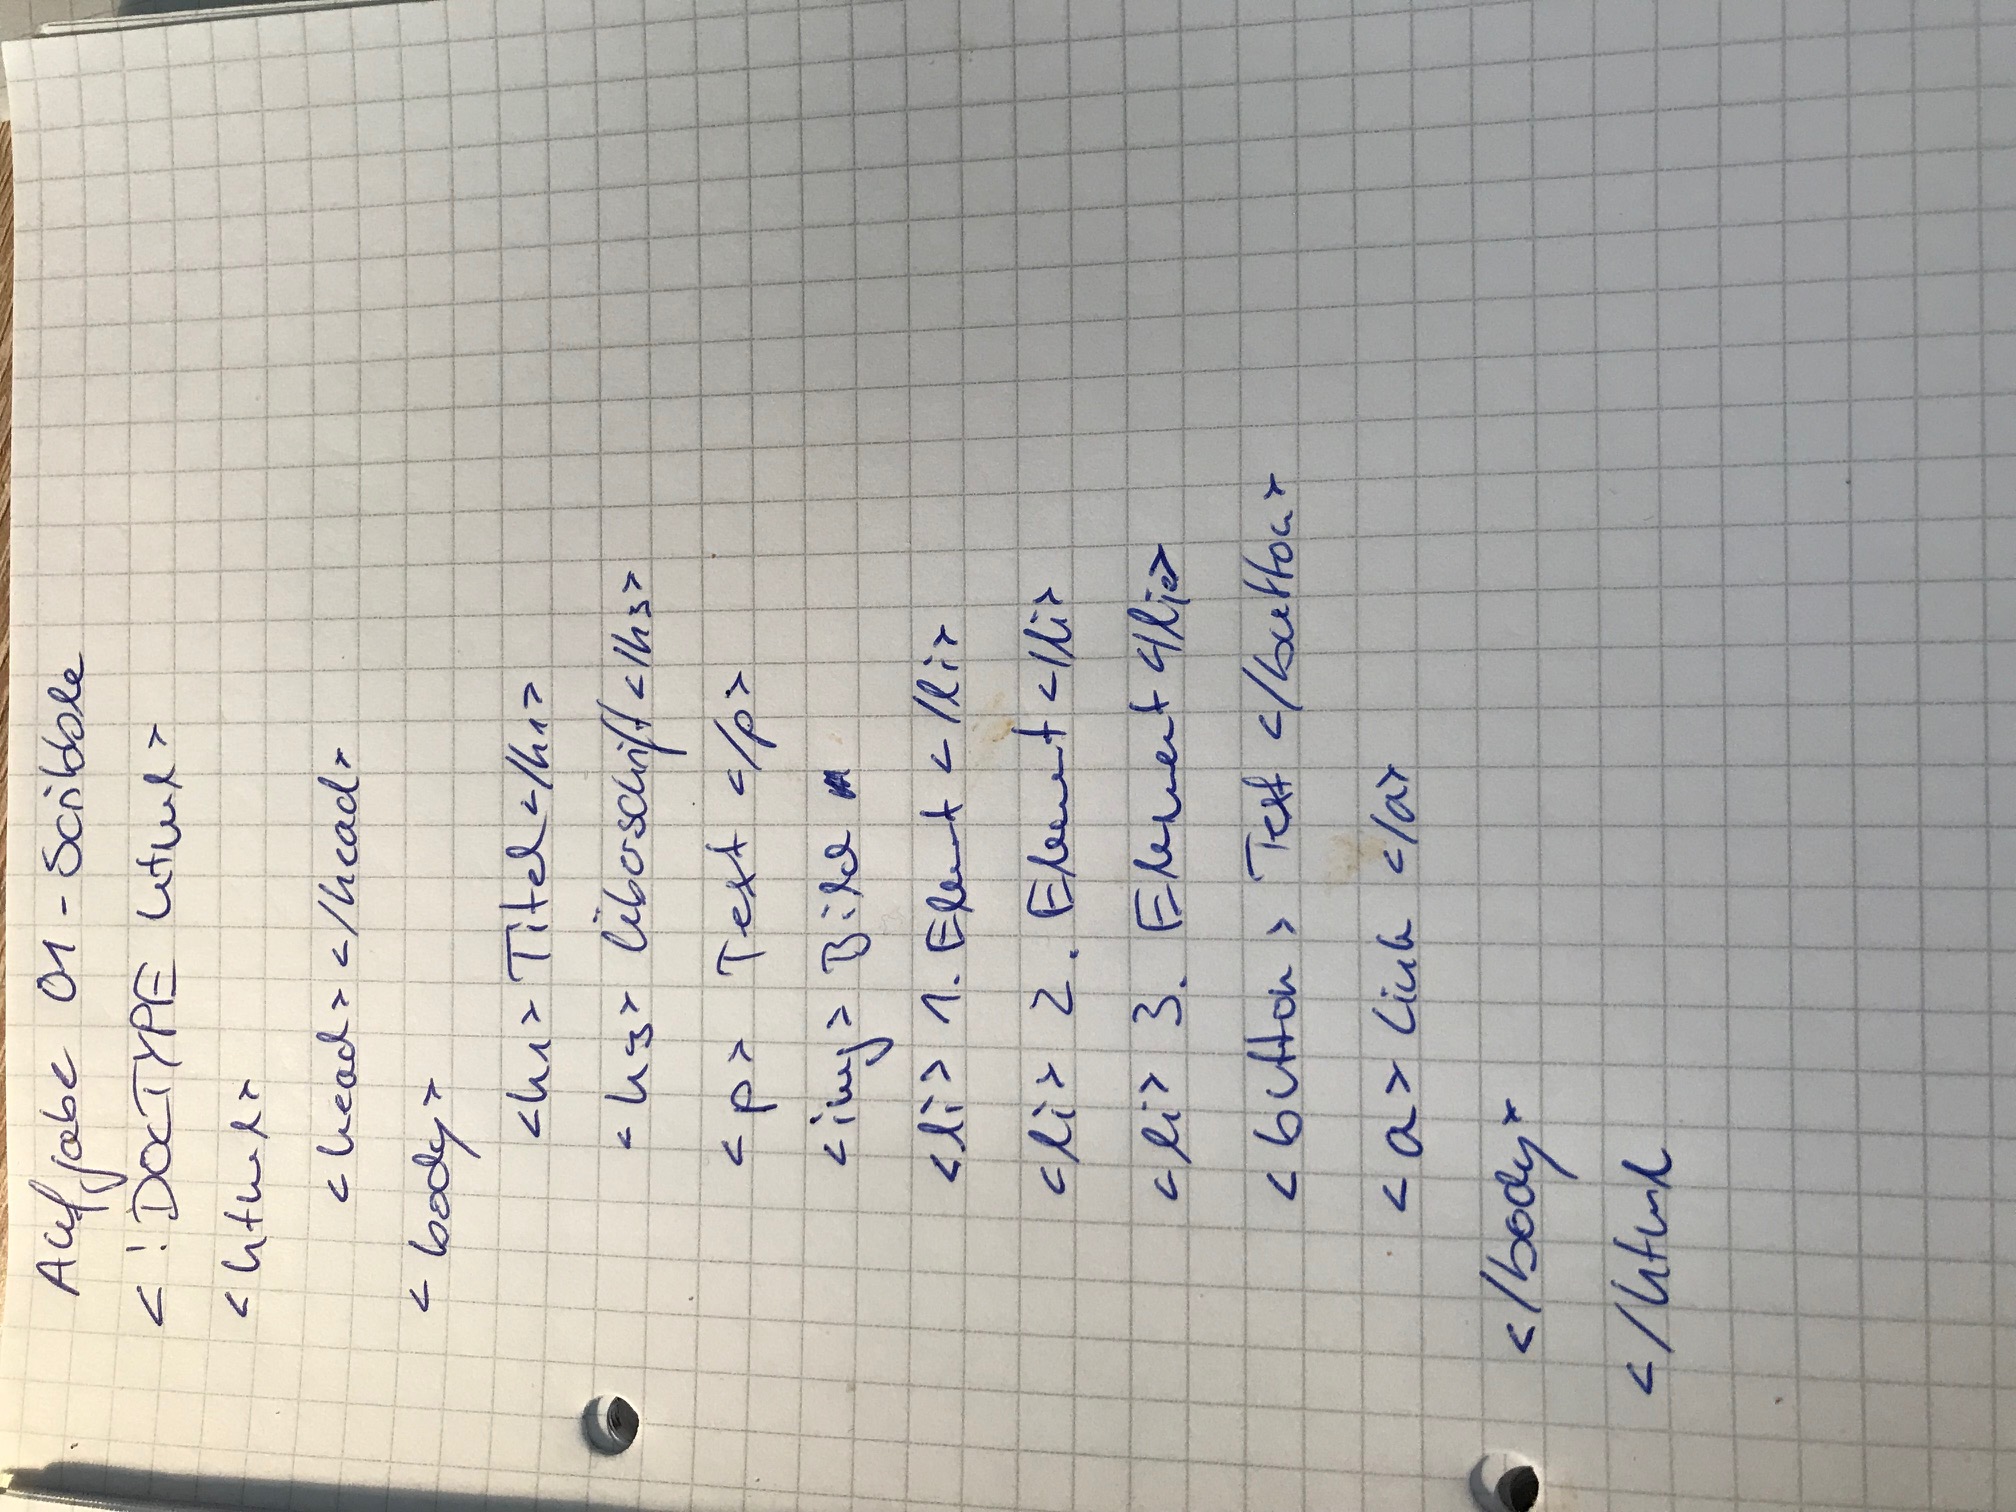 Aufgabe 01 - Scribble
<!DOCTYPE html>
<html>
<head> </head>
<body>
<h1> Titel </h1>
<h3> Überschrift </h3>
<p> Text </p>
<img> Bild
<li> 1. Element </li>
<li> 2. Element </li>
<li> 3. Element </li>
<button> Text </button>
<a> Link </a>
</body>
</html